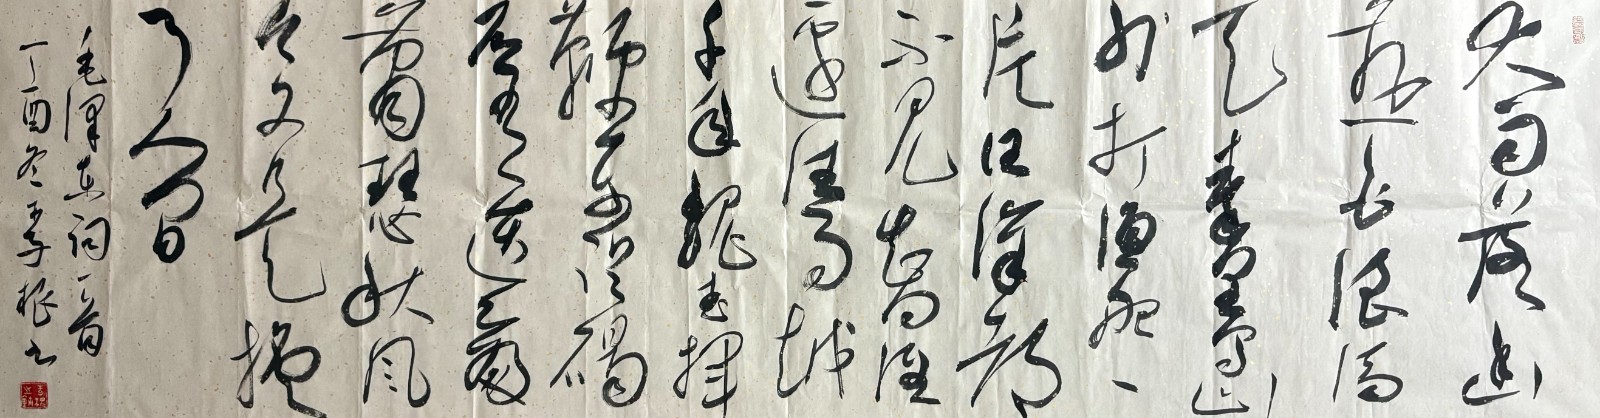 大雨落幽
燕白浪滔
天秦皇岛
外打渔船一
片汪洋都
不见知向谁
边往事越
千年魏武挥
鞭东临碣
石有遗篇
萧瑟秋风
今又是换
了人间
毛泽东词一首
丁酉冬李